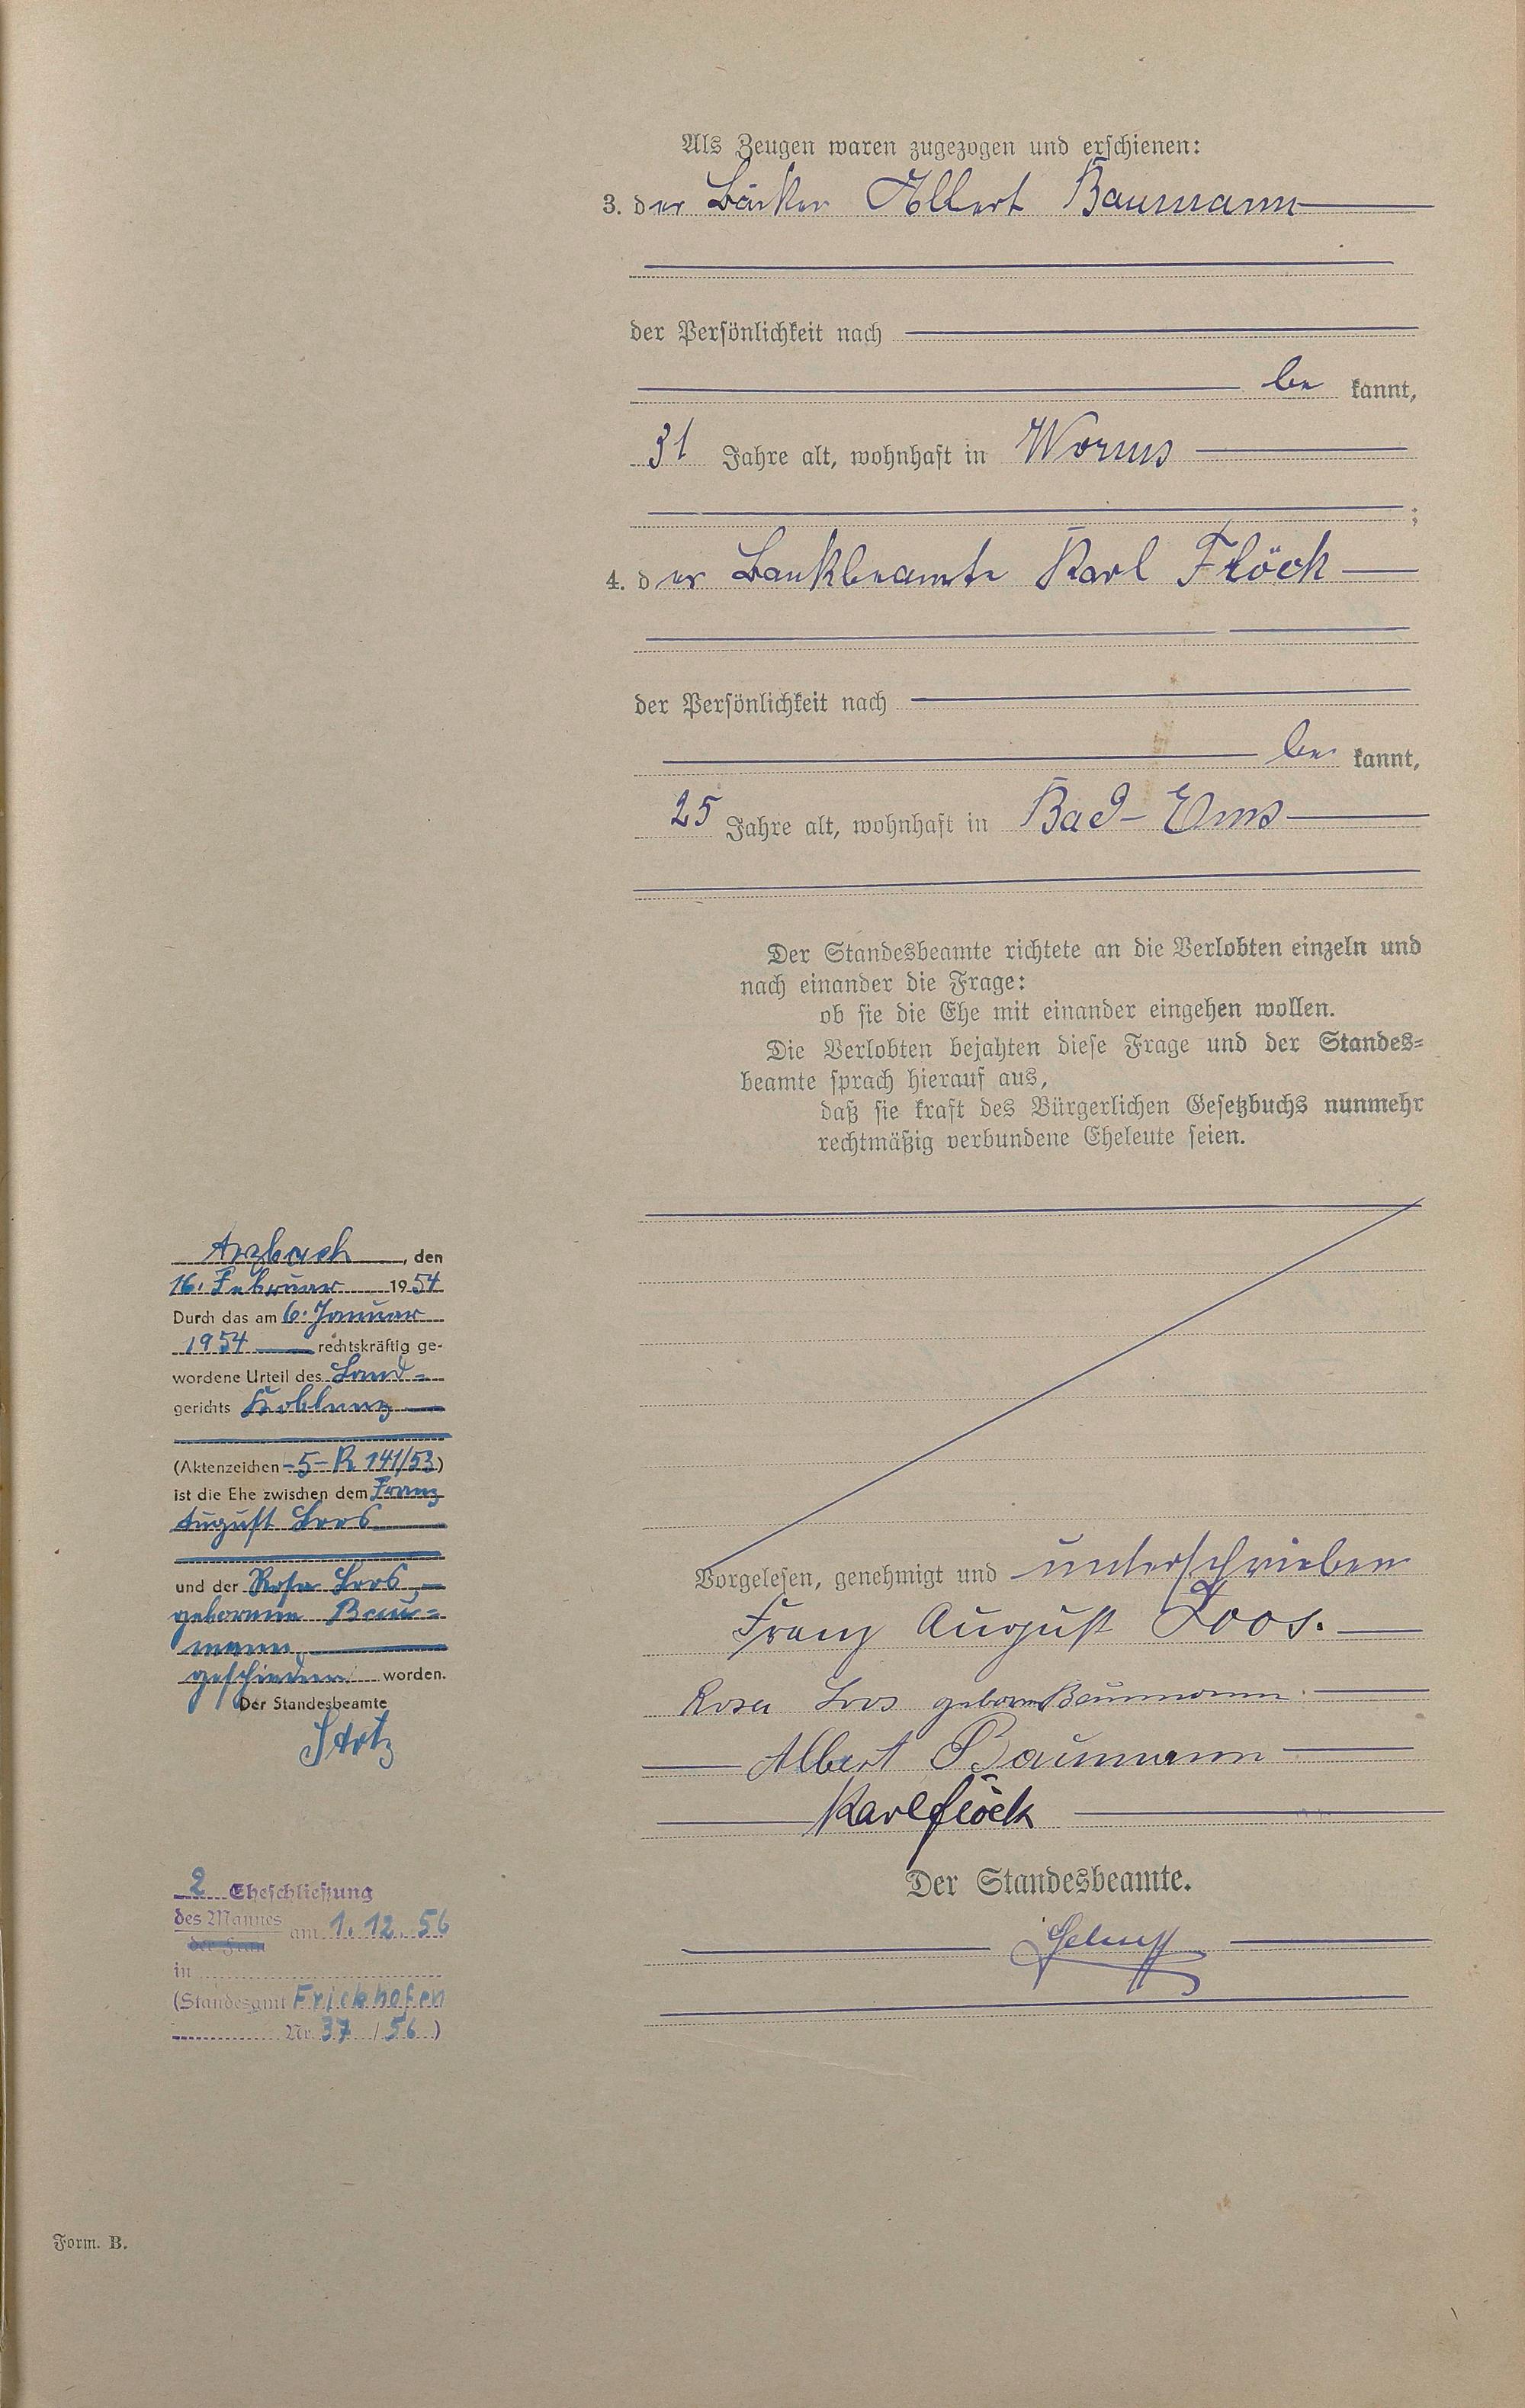 Als Zeugen waren zugezogen und erschienen:
3. der Bäcker Albert Baumann
der Persönlichkeit nach
be kannt,
31 Jahre alt, wohnhaft in Worms
;
4. der Bankbeamte Karl Flöck
der Persönlichkeit nach
be kannt,
25 Jahre alt, wohnhaft in Bad-Ems
Der Standesbeamte richtete an die Verlobten einzeln und
nach einander die Frage:
ob sie die Ehe mit einander eingehen wollen.
Die Verlobten bejahten diese Frage und der Standes=
beamte sprach hierauf aus,
daß sie kraft des Bürgerlichen Gesetzbuchs nunmehr
rechtmäßig verbundene Eheleute seien.
Vorgelesen, genehmigt und unterschrieben
Franz August Loos.
Rosa Loos geborne Baumann.
Albert Baumann
Karl Flöck
Der Standesbeamte.
Arzbach, den
16. Februar 1954
Durch das am 6. Januar
1954 rechtskräftig ge-
wordene Urteil des Land-
gerichts Koblenz
(Aktenzeichen -5-R 141/53)
ist die Ehe zwischen dem Franz
August Loos
und der Rosa Loos,
geborene Bau-
mann
geschieden worden.
Der Standesbeamte
2 Eheschließung
des Mannes
der Frau
am 1.12.56
in
(Standesamt Frickhofen
Nr. 37 / 56)
Form. B.